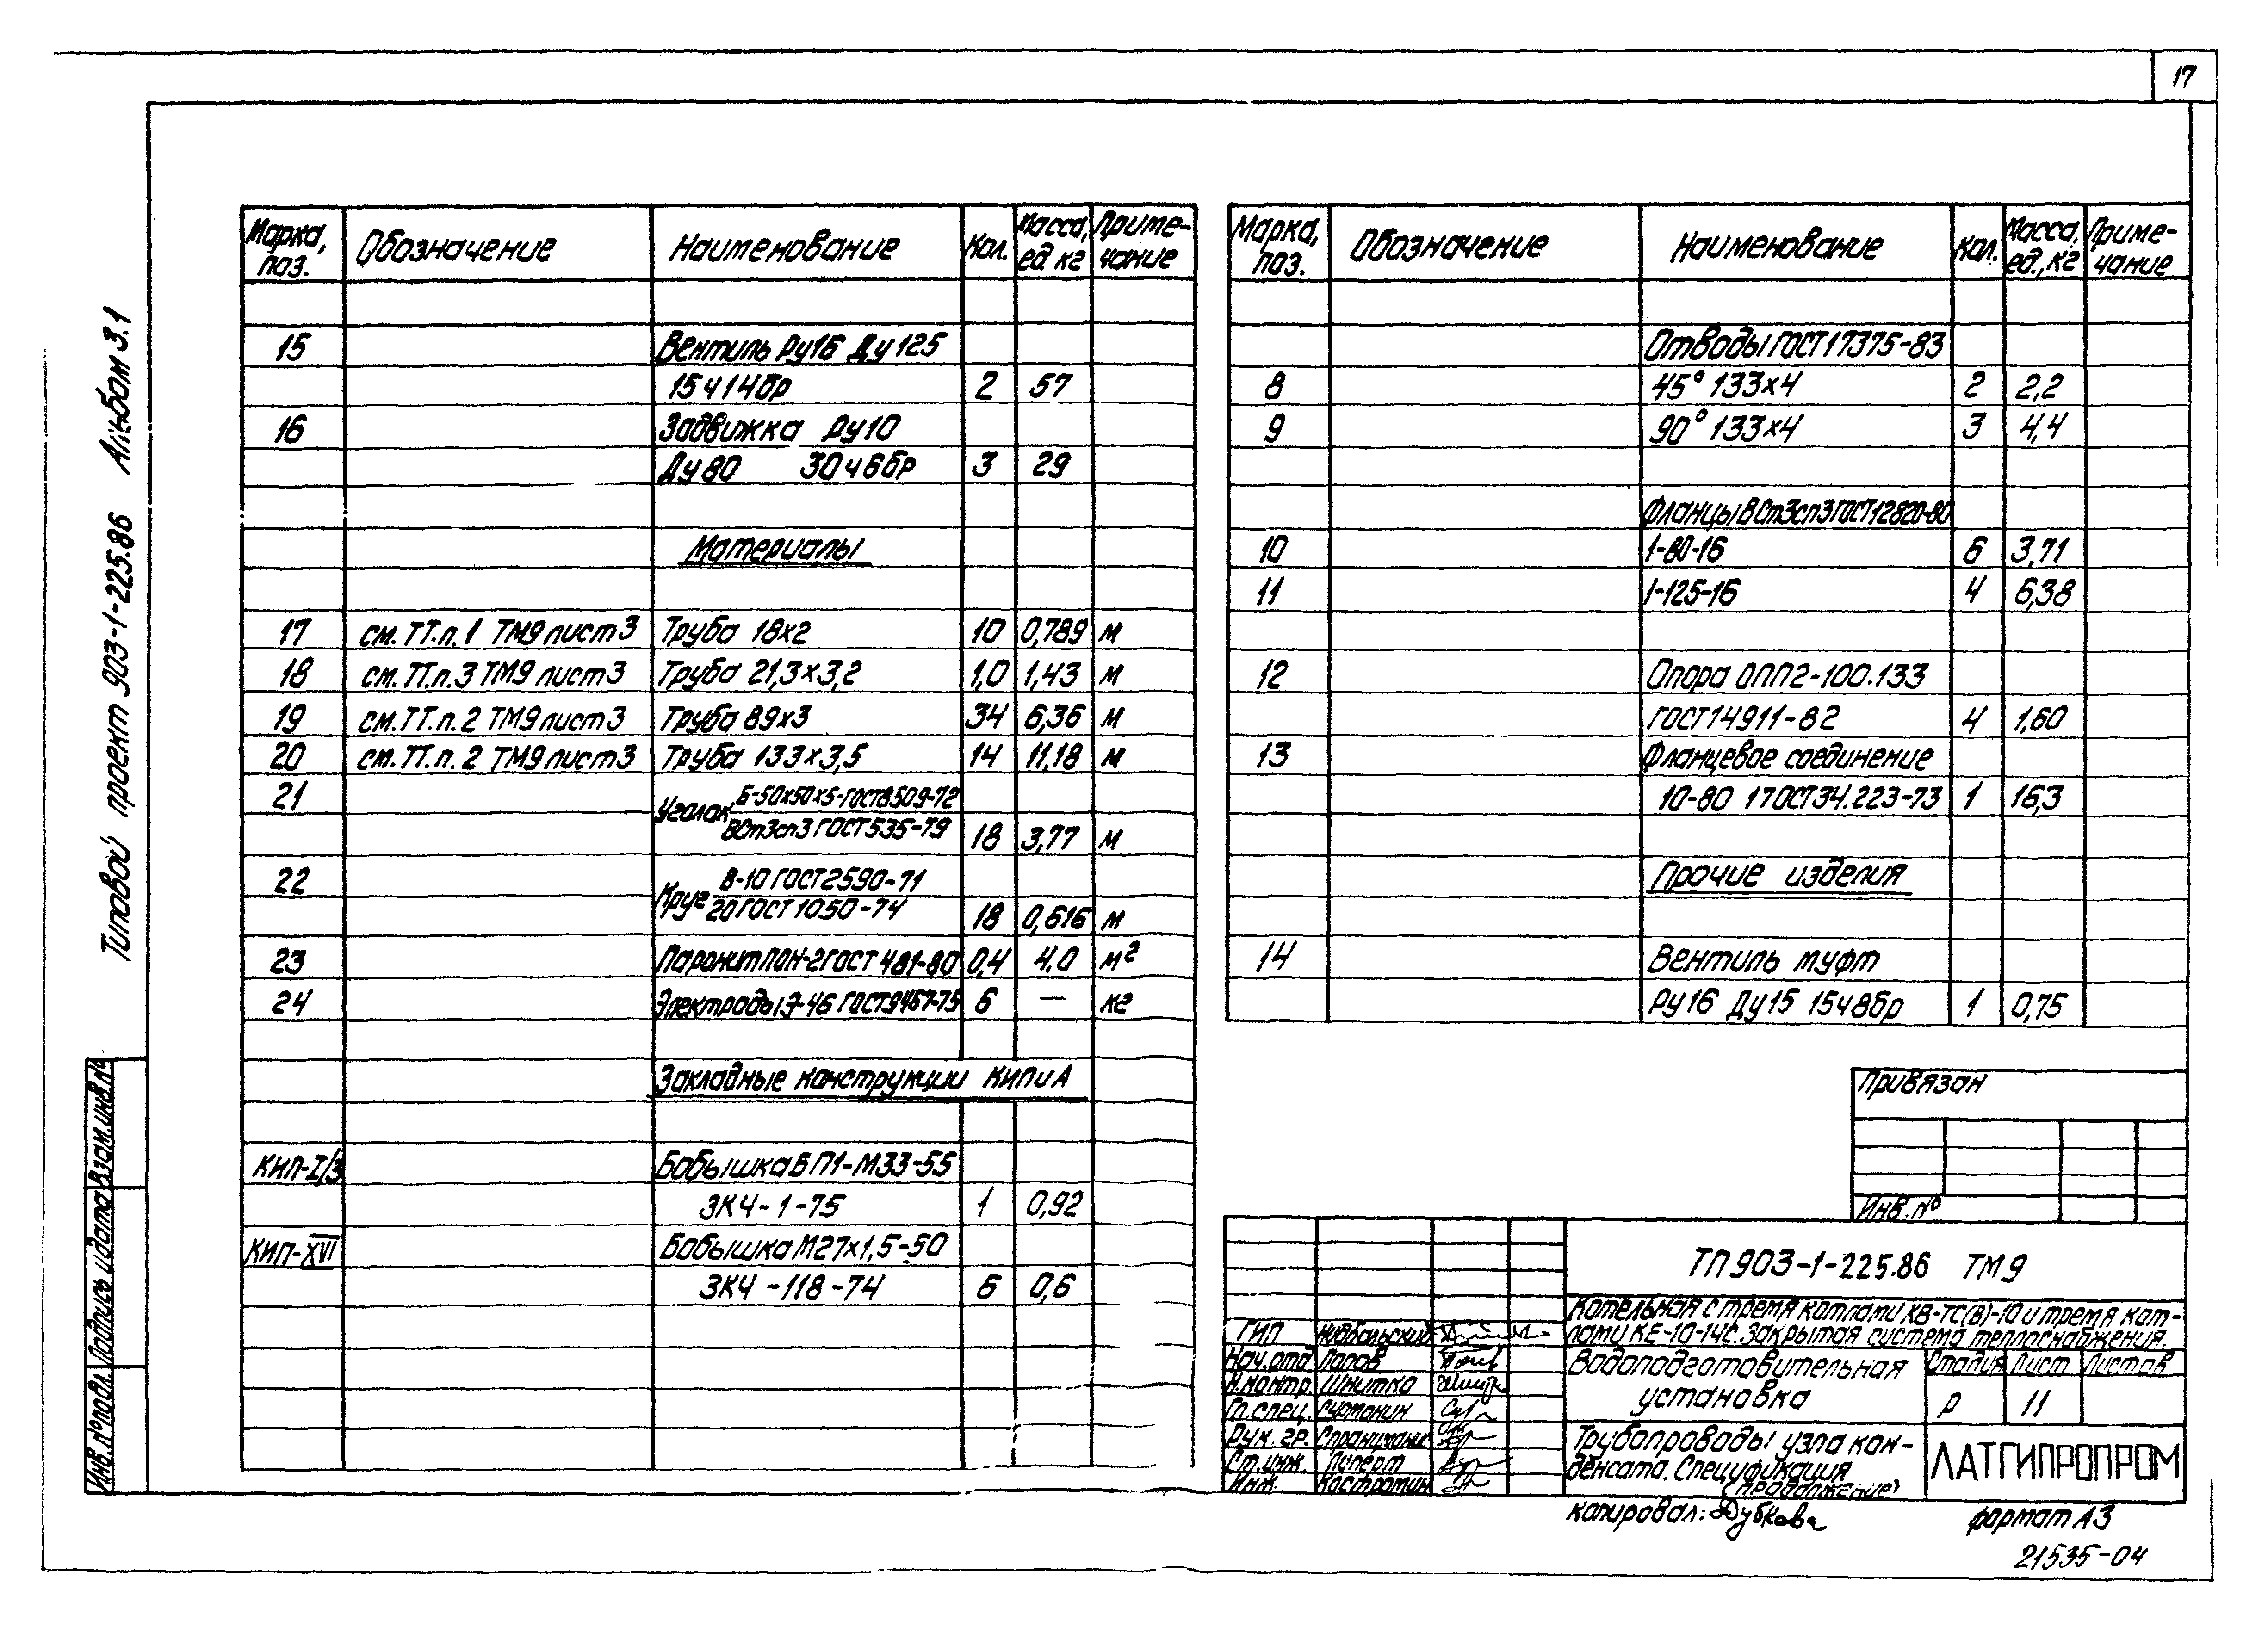 17
Типовой проект 903-1-225.86 Альбом 3.1
Марка, поз. Обозначение Наименование Кол. Масса, ед. кг Приме-чание
15 Вентиль Ру16 Ду125
15ч14бр 2 57
16 Задвижка Ру10
Ду80 30ч6бр 3 29
Материалы
17 см. ТТ.п.1 ТМ9 лист3 Труба 18х2 10 0,789 м
18 см. ТТ.п.3 ТМ9 лист3 Труба 21,3х3,2 1,0 1,43 м
19 см. ТТ.п.2 ТМ9 лист3 Труба 89х3 34 6,36 м
20 см. ТТ.п.2 ТМ9 лист3 Труба 133х3,5 14 11,18 м
21 Уголок Б-50х50х5-ГОСТ8509-72
ВСт3сп3 ГОСТ535-79 18 3,77 м
22 Круг В-10 ГОСТ2590-71
20 ГОСТ 1050-74 18 0,616 м
23 Паронит ПОН-2 ГОСТ 481-80 0,4 4.0 м²
24 Электроды Э-46 ГОСТ9467-75 6 — кг
Закладные конструкции КИПиА
КИП-I/3 Бобышка БП1-М33-55
ЗК4-1-75 1 0,92
КИП-XVI Бобышка М27х1,5-50
ЗК4-118-74 6 0,6
Марка, поз. Обозначение Наименование Кол. Масса, ед., кг Приме-чание
Отводы ГОСТ17375-83
8 45° 133х4 2 2,2
9 90° 133х4 3 4,4
Фланцы ВСт3сп3 ГОСТ12820-80
10 1-80-16 6 3,71
11 1-125-16 4 6,38
12 Опора ОПП2-100.133
ГОСТ14911-82 4 1,60
13 Фланцевое соединение
10-80 17ОСТ34.223-73 1 16,3
Прочие изделия
14 Вентиль муфт
Ру16 Ду15 15ч8бр 1 0,75
Привязан
Инв. №
ТП 903-1-225.86 ТМ9
Котельная с тремя котлами КВ-ТС(В)-10 и тремя кот-
лами КЕ-10-14С. Закрытая система теплоснабжения.
ГИП
Нач. отд. Попов
Н. контр. Шнитка
Гл. спец. Сурмонин
Рук. гр.
Ст. инж. Пиперт
Инж. Костромин
Водоподготовительная
установка
Стадия Лист Листов
Р 11
Трубопроводы узла кон-
денсата. Спецификация
(продолжение)
ЛАТГИПРОПРОМ
Копировал: Дубкова
формат А3
21535-04
Инв. № подл. Подпись и дата Взам. инв. №